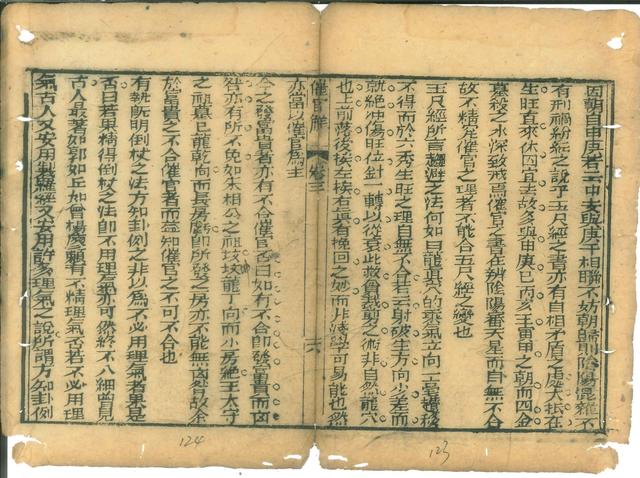 因朝自申庚若云中安與庚子相聯不妨朝歸則陰陽混雜不
有刑禍紛紜之說乎玉尺經之書亦有自相矛盾之處大抵在
生旺直來休囚宜去故多與申庚巳丙亥壬當用之朝而四金
墓殺之水深致戒焉催官之書在辨陰陽審天星而自無不合
故不精究催官之理者不能合玉尺經之變也
玉尺經所言趨避之法何如曰龍真穴的乘氣立向一毫攢移
不得而於六秀生旺之理自無不合若云射破生方向少差而
就絕沖傷旺位針一轉以從衰此救貧裁剪之術非自然龍穴
也上前落後挨左挨右真有挽回之妙而非淺學可易能也然
亦當以催官為主
催官解
卷三
今之發富貴者亦有不合催官否曰如有不合即發富貴而凶
咎亦有所不免如朱相公之祖坟坡龍丁向而小房絕王太守
之祖墓巳龍乾向而長房虧即所發之房亦不能無凶咎故余
於富貴之不合催官者而益知催官之不可不合也
有執既明倒杖之法方知卦例之非以為不必用理氣者果是
否曰若果精得倒杖之法即不用理氣亦可然終不八細曾見
古人最著如郭如丘如曾楊廖賴有不精理氣否若不必用理
氣古人又安用我羅經又安用許多理氣之說所謂方知卦例
124
123